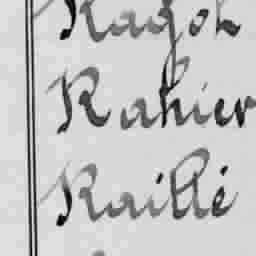 Ragot
Rahier
Raillé